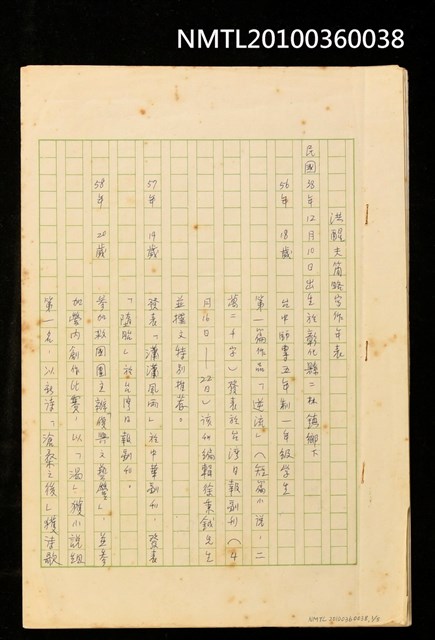 NMTL20100360038
洪醒夫簡略寫作年表
民國38年12月10日出生於彰化縣二林鎮鄉下
56年 18歲 台中師專五年制一年級學生
第一篇作品「逆流」(短篇小說,二
萬二千字)發表於台灣日報副刊(4
月16日 22日)該刊編輯徐秉鉞先生
並撰文特別推荐。
57年 19歲 發表「瀟瀟風雨」於中華副刊 發表
「隨胎」於台灣日報副刊。
58年 20歲 參加救國團主辦復興文藝營,並參
加營內創作比賽,以「渴」獲小說組
第一名,以新詩「滄桑之後」獲詩歌
NMTL20100360038,1/8